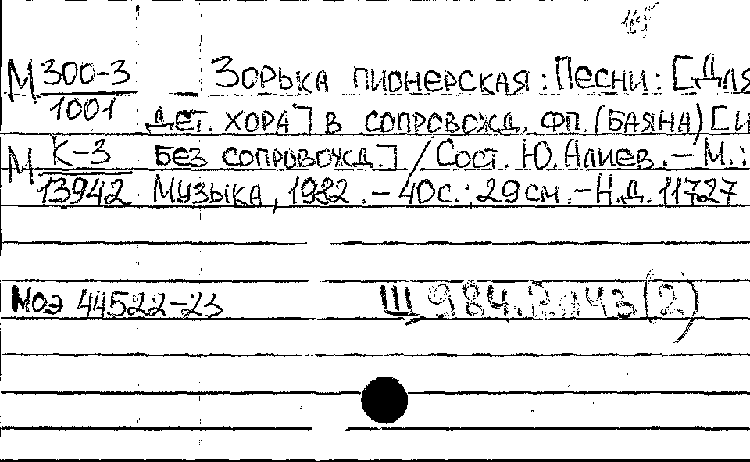 М 300-3 — Зорька пионерская: Песни: [Для
1001 дет. хора] в сопровожд. фп. (баяна) [и
М К-3 без сопровожд.] / Сост. Ю. Алиев. – М.:
13942 Музыка, 1982. – 40с.; 29см. – Н.д. 11727
Моэ 44522-23 Щ 984.2я43(2)